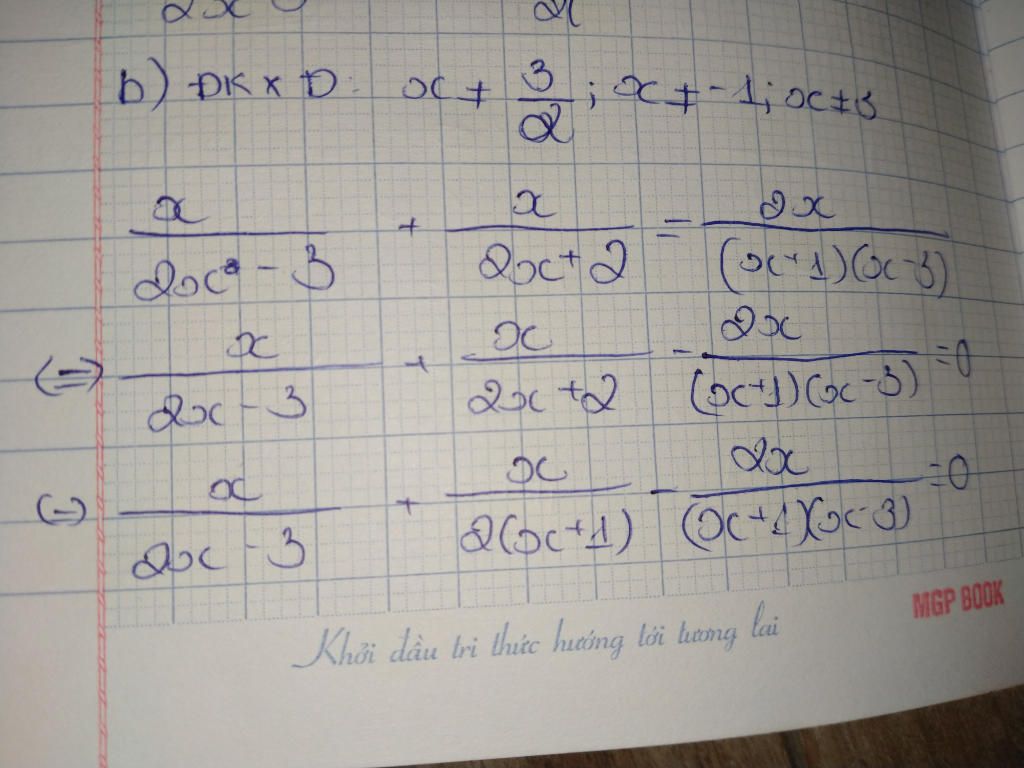 2x 2x
b) ĐKXĐ: x ≠ 3/2; x ≠ -1; x ≠ 3
x/(2x - 3) + x/(2x + 2) = 2x/((x+1)(x-3))
(=) x/(2x - 3) + x/(2x + 2) - 2x/((x+1)(x-3)) = 0
(=) x/(2x - 3) + x/(2(x+1)) - 2x/((x+1)(x-3)) = 0
MGP BOOK
Khởi đầu tri thức hướng tới tương lai